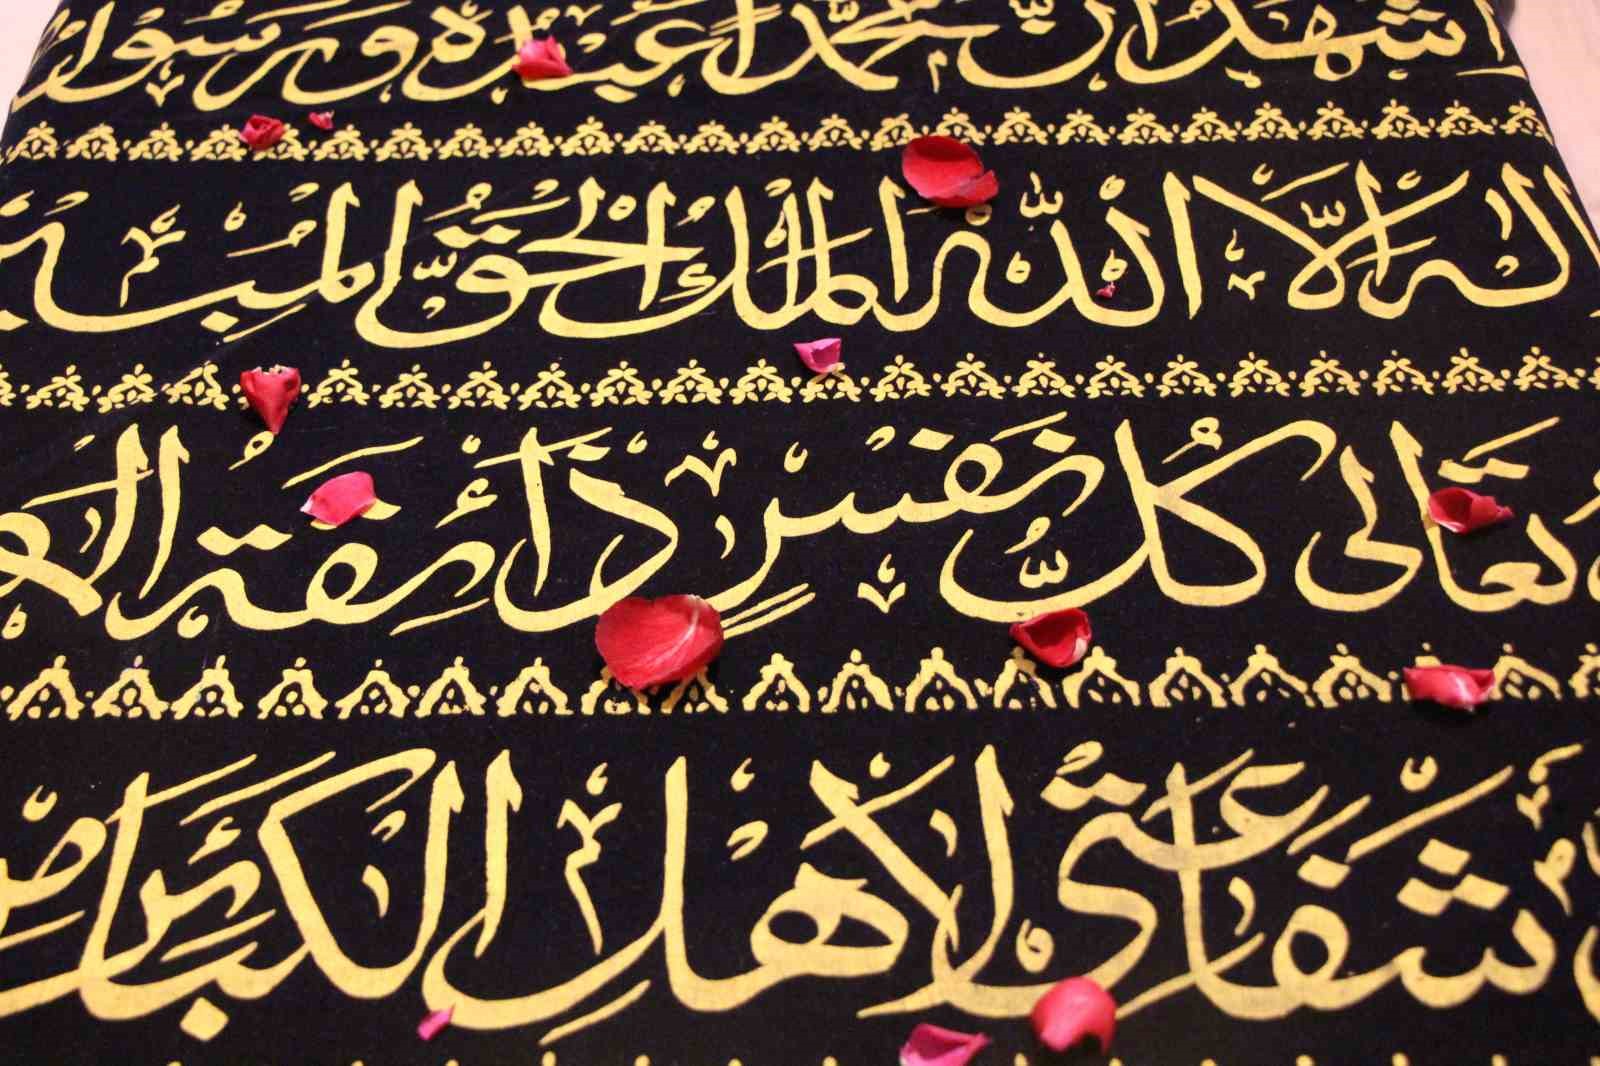 اشهد ان محمدا عبده ورسوله
اله الا الله الملك الحق المبين
تعالى كل نفس ذائقة
شفاعتي لاهل الكبائر